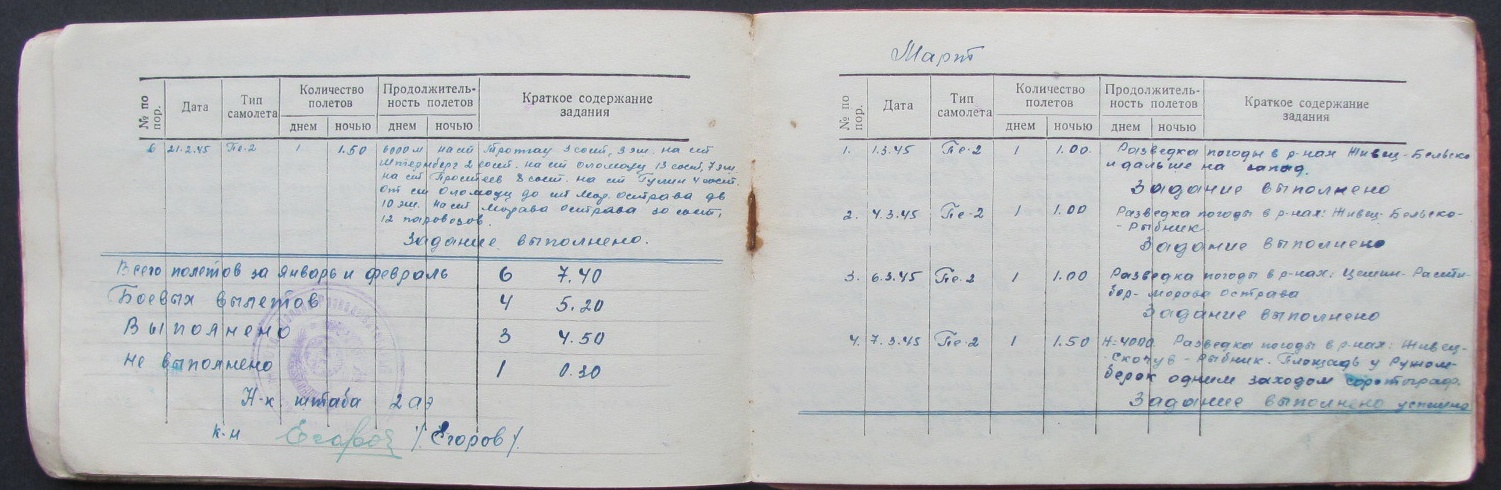 № по пор. Дата Тип самолета Количество полетов Продолжительность полетов Краткое содержание задания
днем ночью днем ночью
6 21.2.45 Пе-2 1 1.50 6000 м на ст Троппау 3 сост, 3 эш. на ст
Штернберг 2 сост. на ст Оломоуц 13 сост, 7 эш
на ст Простеев 8 сост. на ст Гулин 4 сост.
От ст Оломоуц до ст Мор. Острава дв
10 эш. на ст Морава Острава 30 сост,
12 паровозов.
Задание выполнено.
Всего полетов за январь и февраль 6 7.40
Боевых вылетов 4 5.20
Выполнено 3 4.50
Не выполнено 1 0.30
Н-к штаба 2 аэ
к-н Егоров /Егоров/
Март
№ по пор. Дата Тип самолета Количество полетов Продолжительность полетов Краткое содержание задания
днем ночью днем ночью
1. 1.3.45 Пе-2 1 1.00. Разведка погоды в р-нах Живец-Бельско
и дальше на запад.
Задание выполнено
2. 4.3.45 Пе-2 1 1.00 Разведка погоды в р-нах: Живец-Бельско-
-Рыбник
Задание выполнено
3. 6.3.45 Пе-2 1 1.00 Разведка погоды в р-нах: Цешин-Рати-
бор-Морава Острава
Задание выполнено
4. 7.3.45 Пе-2 1 1.50 Н=4000. Разведка погоды в р-нах: Живец-
-Скочув-Рыбник. Площадь у Ружом-
берок одним заходом сфотограф.
Задание выполнено успешно